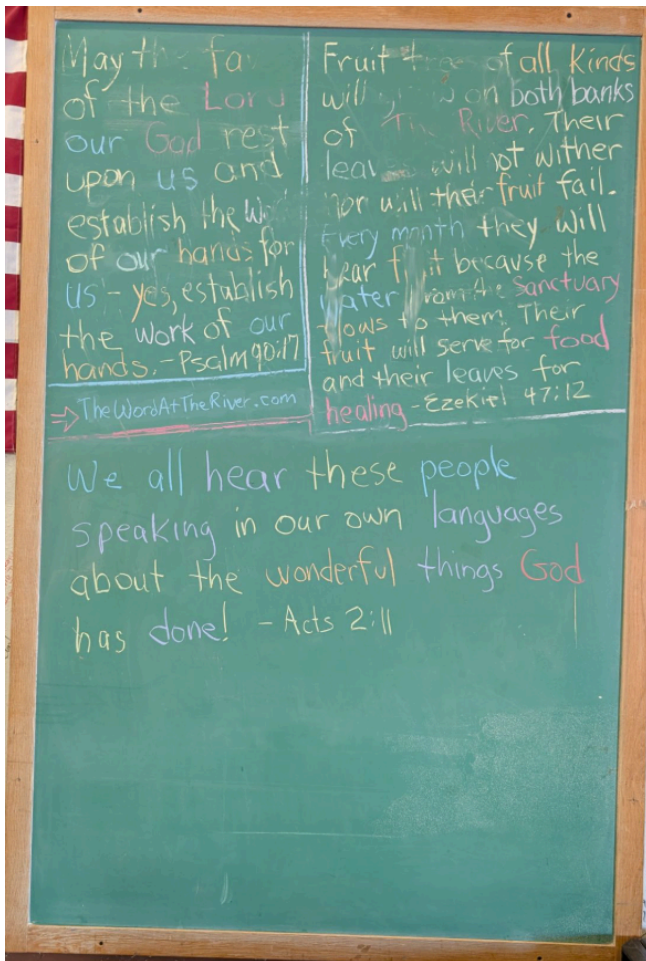 May the fa
of the Lord
our God rest
upon us and
establish the Wor
of our hands for
us - yes, establish
the work of our
hands. - Psalm 90:17
→ TheWordAtTheRiver.com
Fruit trees of all kinds
will grow on both banks
of The River. Their
leaves will not wither
nor will their fruit fail.
Every month they will
bear fruit because the
water from the Sanctuary
flows to them. Their
fruit will serve for food
and their leaves for
healing - Ezekiel 47:12
We all hear these people
speaking in our own languages
about the wonderful things God
has done! - Acts 2:11